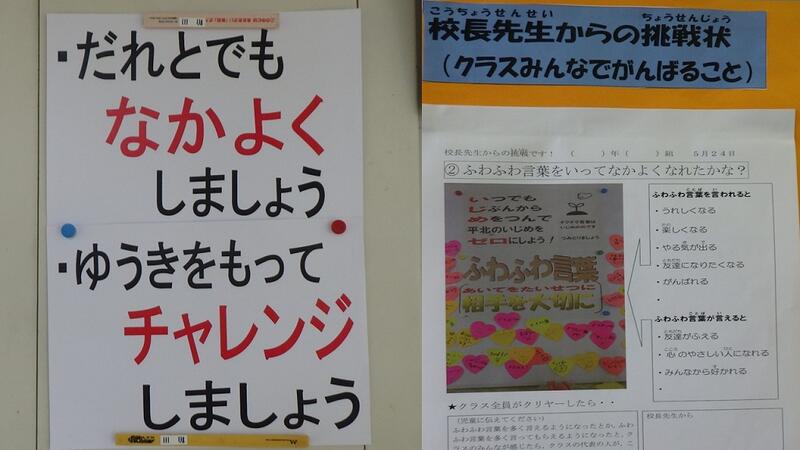 ・だれとでも
なかよく
しましょう
・ゆうきをもって
チャレンジ
しましょう
こうちょうせんせい ちょうせんじょう
校長先生からの挑戦状
（クラスみんなでがんばること）
校長先生からの挑戦です！ （ ）年（ ）組 ５月２４日
②ふわふわ言葉をいってなかよくなれたかな？
いつでも
じぶんから
めをつんで
平北のいじめを
ゼロにしよう！
ふわふわ言葉
あいてをたいせつに
相手を大切に
ふわふわ言葉を言われると
・うれしくなる
・楽しくなる
・やる気が出る
・友達になりたくなる
・がんばれる
・
ふわふわ言葉が言えると
・友達がふえる
・心のやさしい人になれる
・みんなから好かれる
・
★クラス全員がクリヤーしたら・・
（児童に伝えてください）
ふわふわ言葉を多く言えるようになったとか、ふわ
ふわ言葉を多く言ってもらえるようになったと、ク
ラスのみんなが感じたら、クラスの代表の人が、こ
校長先生から